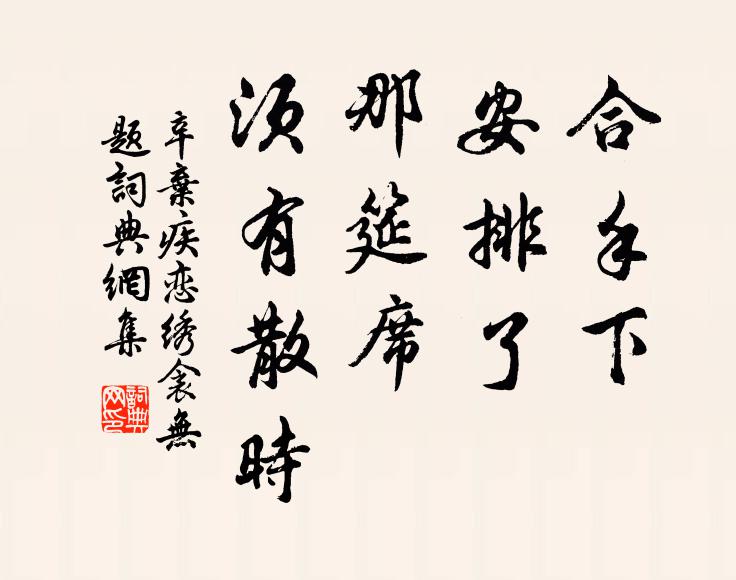 合手下
安排了
那筵席
須有散時
辛棄疾恋绣衾無
題詞典網集
詞典网印